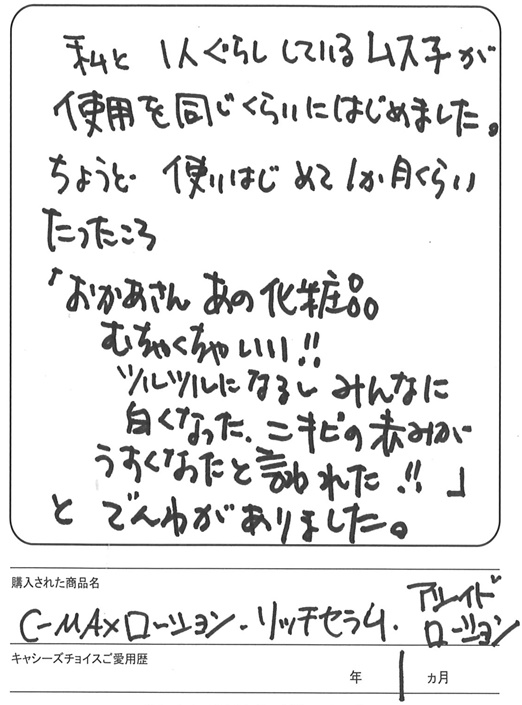 私と 1人ぐらししているムス子が
使用を同じくらいにはじめました。
ちょうど 使いはじめて1か月くらい
たったころ
「おかあさん あの化粧品
むちゃくちゃいい!!
ツルツルになるし みんなに
白くなった、ニキビの赤みが
うすくなったと言われた!!」
と でんわがありました。
購入された商品名
C-MAXローション・リッチセラム・アクレイド
ローション
キャシーズチョイスご愛用歴
年 1 ヵ月